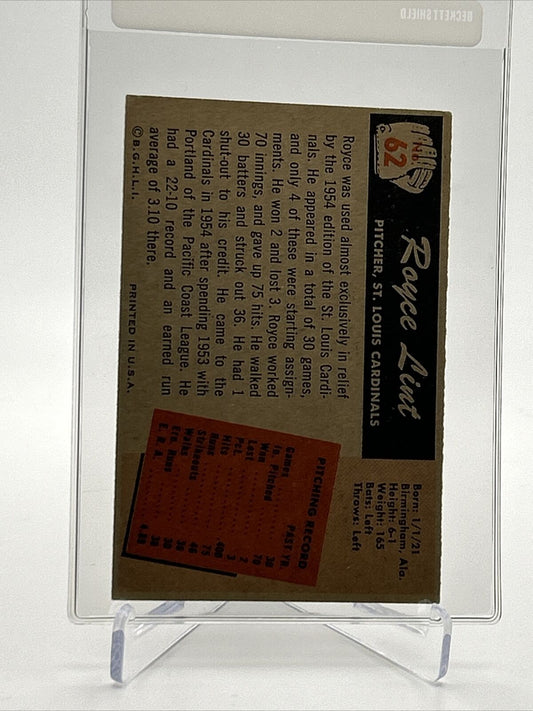 BECKETT SHIELD
No.
62
Royce Lint
PITCHER, ST. LOUIS CARDINALS
Born: 1/1/21
Birmingham, Ala.
Height: 6-1
Weight: 165
Bats: Left
Throws: Left
Royce was used almost exclusively in relief
by the 1954 edition of the St. Louis Cardi-
nals. He appeared in a total of 30 games,
and only 4 of these were starting assign-
ments. He won 2 and lost 3. Royce worked
70 innings, and gave up 75 hits. He walked
30 batters and struck out 36. He had 1
shut-out to his credit. He came to the
Cardinals in 1954 after spending 1953 with
Portland of the Pacific Coast League. He
had a 22-10 record and an earned run
average of 3.10 there.
©B.G.H.L.I. PRINTED IN U.S.A.
PITCHING RECORD
PAST YR.
Games 30
In. Pitched 70
Won 2
Lost 3
Pct. 400
Hits 75
Runs 46
Strikeouts 36
Walks 30
Ern. Runs 38
E. R. A. 4.89